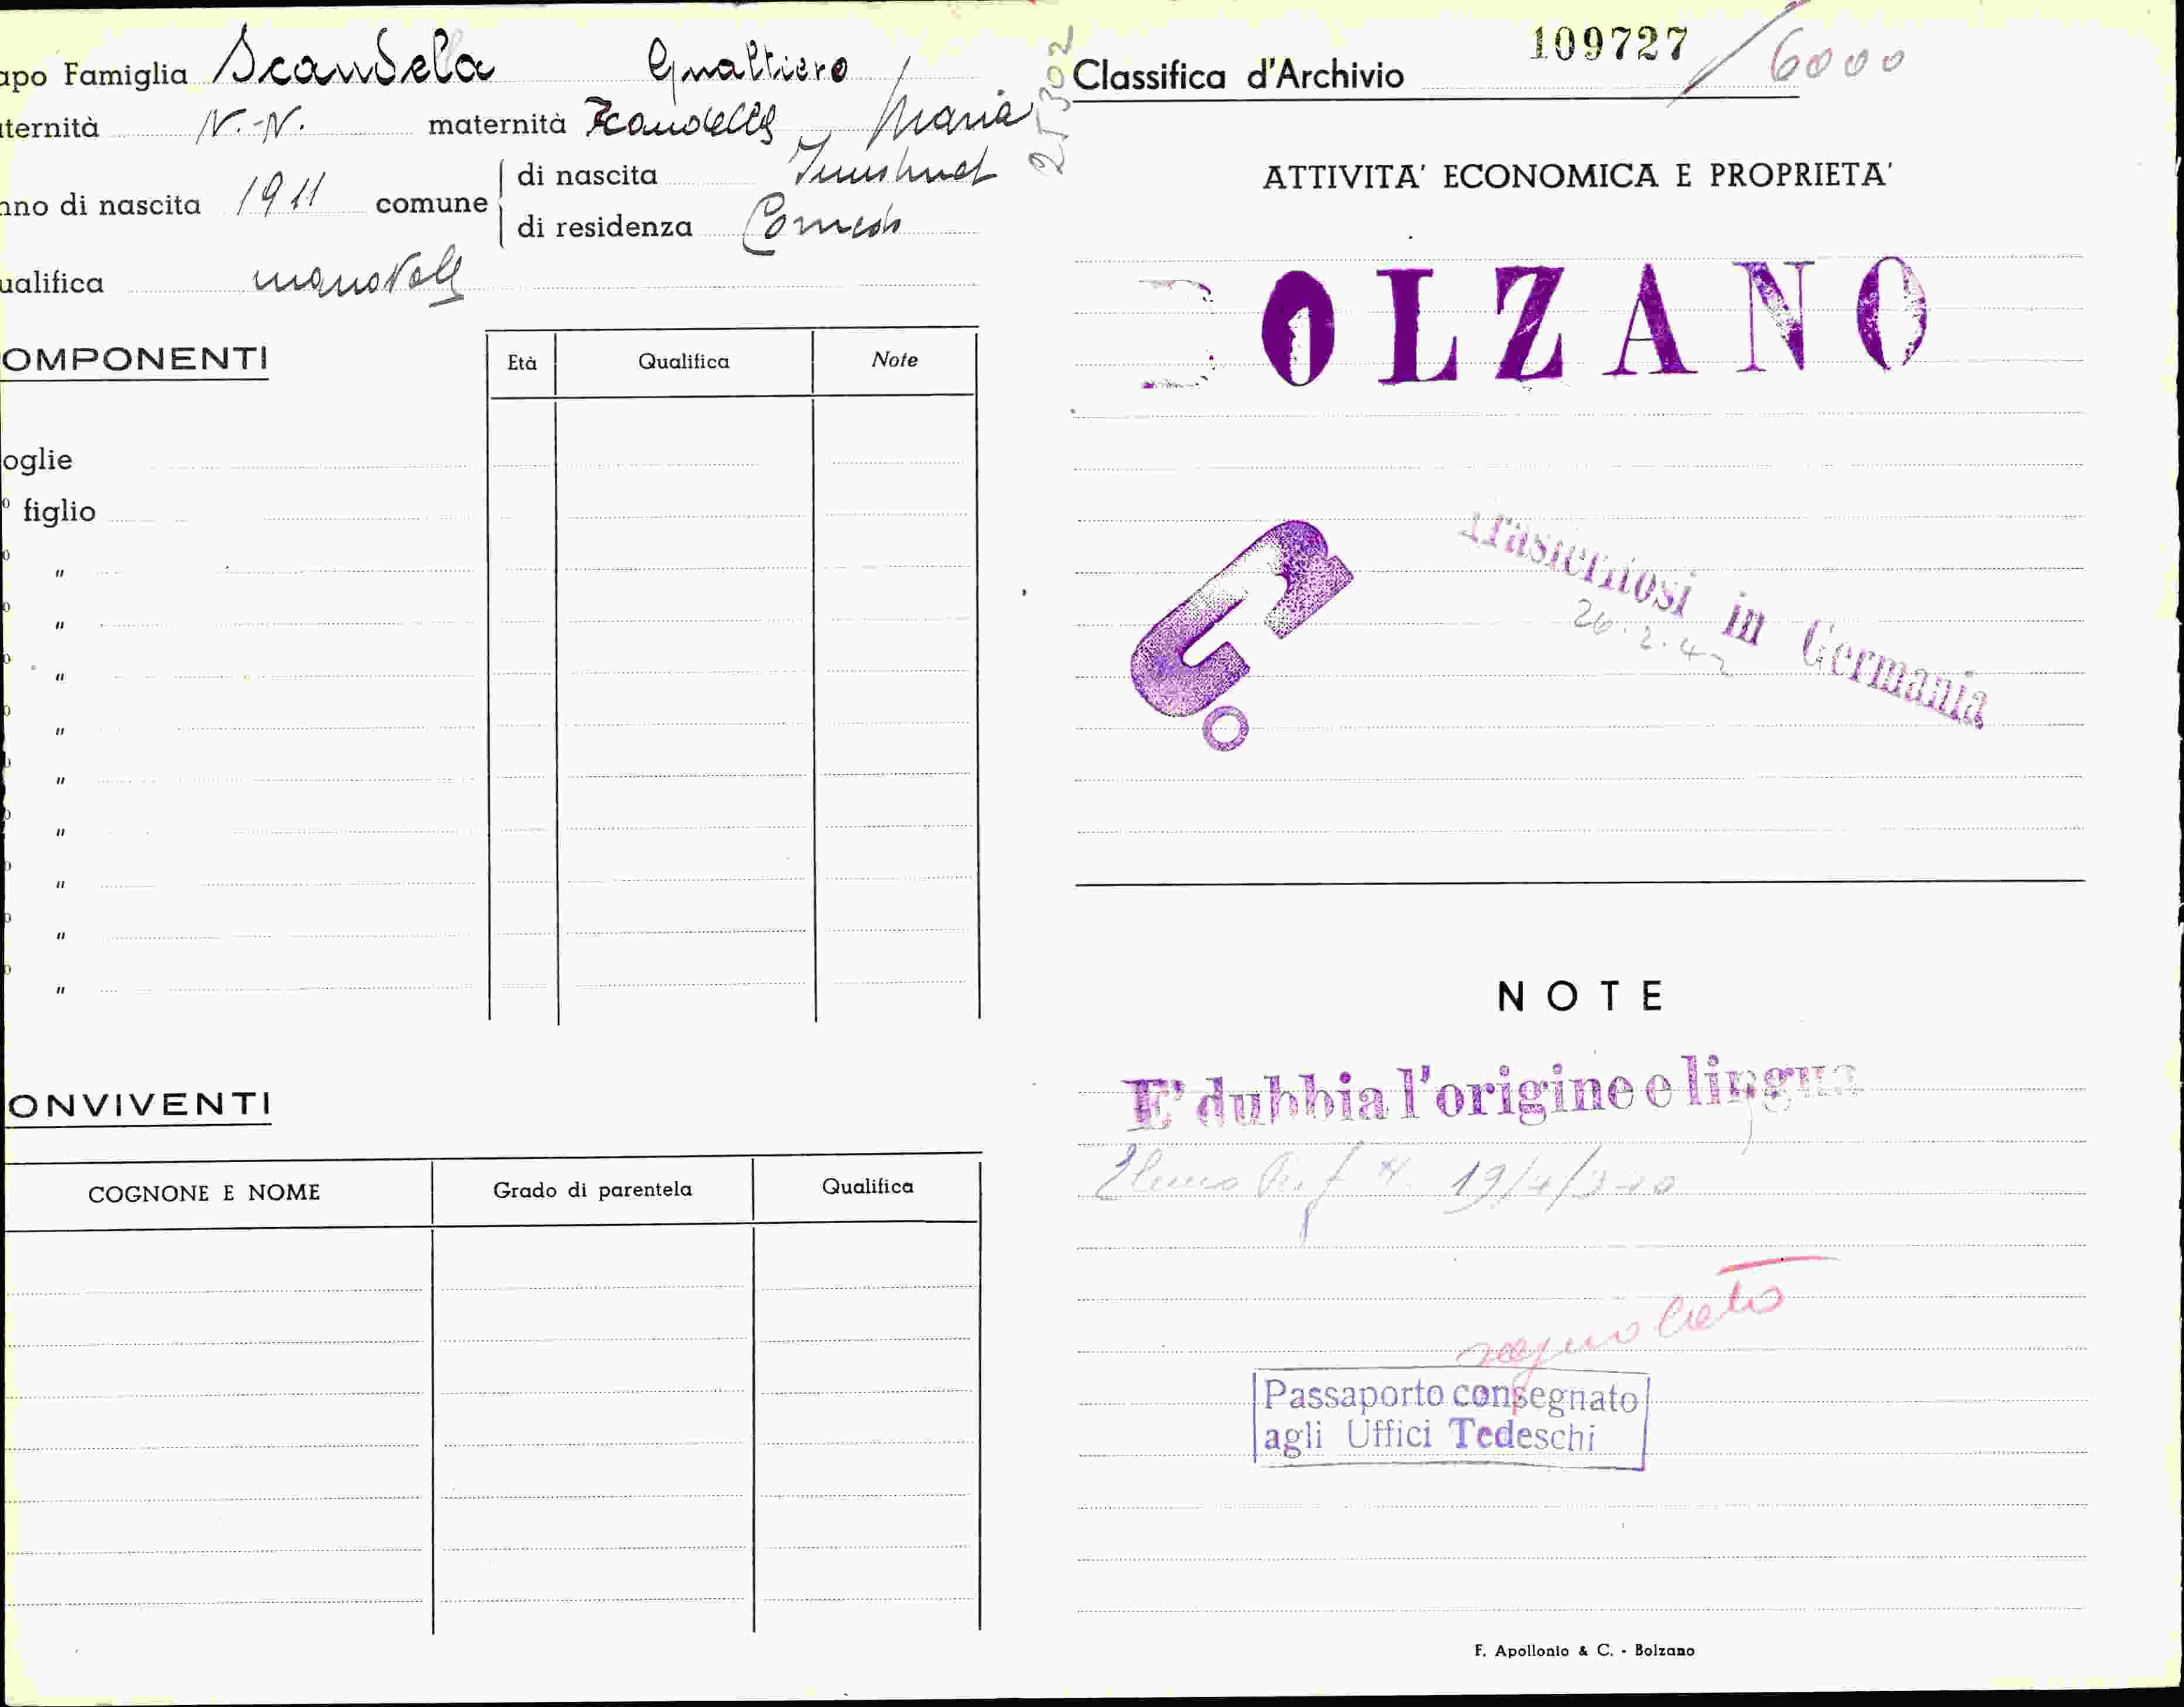 apo Famiglia Scandela Gualtiero
ternità N.-N. maternità Scandella Maria
nno di nascita 1911 comune di nascita Innsbruck
di residenza Cornedo
ualifica manovale
OMPONENTI
Età Qualifica Note
oglie
o figlio
o "
o "
o "
o "
o "
o "
o "
o "
o "
ONVIVENTI
COGNONE E NOME Grado di parentela Qualifica
25302
Classifica d'Archivio 109727 / 6000
ATTIVITA' ECONOMICA E PROPRIETA'
OLZANO
G.
Trasferitosi in Germania
26.2.42
NOTE
E' dubbia l'origine e lingua
Elenco Pref N. 19/4/
Passaporto consegnato
agli Uffici Tedeschi
F. Apollonio & C. - Bolzano